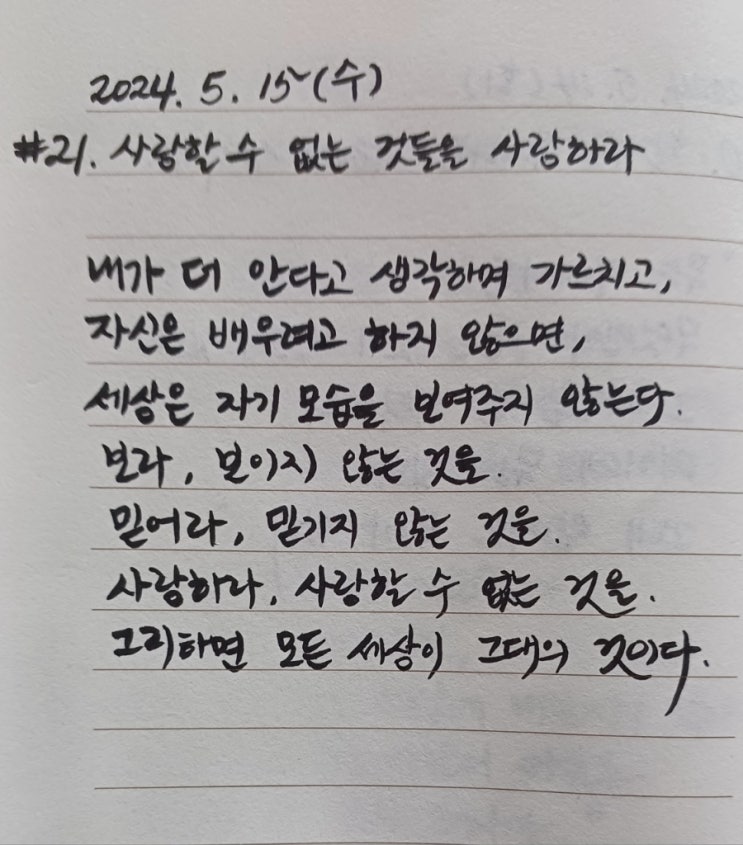 2024. 5. 15 (수)
#21. 사랑할 수 없는 것들을 사랑하라
내가 더 안다고 생각하며 가르치고,
자신은 배우려고 하지 않으면,
세상은 자기 모습을 보여주지 않는다.
보라, 보이지 않는 것을.
믿어라, 믿기지 않는 것을.
사랑하라, 사랑할 수 없는 것을.
그리하면 모든 세상이 그대의 것이다.